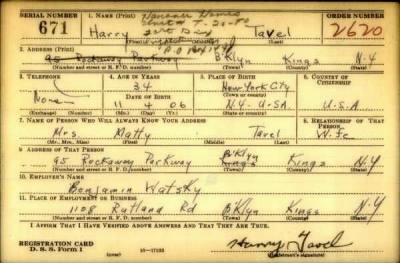 SERIAL NUMBER 1. NAME (Print) ORDER NUMBER
671 Harry Tavel 2620
(First) (Middle) (Last)
2. ADDRESS (Print)
95 Rockaway Parkway B'klyn Kings N.Y
(Number and street or R. F. D. number) (Town) (County) (State)
3. TELEPHONE 4. AGE IN YEARS 5. PLACE OF BIRTH 6. COUNTRY OF CITIZENSHIP
34 New York City
(Town or county)
None DATE OF BIRTH
11 4 06 N.Y. U.S.A U.S.A
(Exchange) (Number) (Mo.) (Day) (Yr.) (State or country)
7. NAME OF PERSON WHO WILL ALWAYS KNOW YOUR ADDRESS 8. RELATIONSHIP OF THAT PERSON
Mrs. Matty Tavel Wife
(Mr., Mrs., Miss) (First) (Middle) (Last)
9. ADDRESS OF THAT PERSON
95 Rockaway Parkway B'klyn Kings N.Y
(Number and street or R. F. D. number) (Town) (County) (State)
10. EMPLOYER'S NAME
Benjamin Watsky
11. PLACE OF EMPLOYMENT OR BUSINESS
1108 Rutland Rd B'klyn Kings N.Y
(Number and street or R. F. D. number) (Town) (County) (State)
I AFFIRM THAT I HAVE VERIFIED ABOVE ANSWERS AND THAT THEY ARE TRUE.
REGISTRATION CARD
D. S. S. Form 1 16—17105 Harry Tavel
(Registrant's signature)